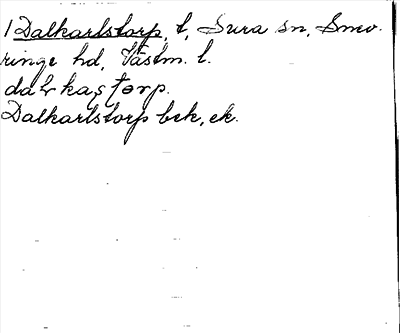 1 Dalkarlstorp, t, Sura sn, Snev-
ringe hd, Västm. l.
Dalkarlstorp bek, ek.